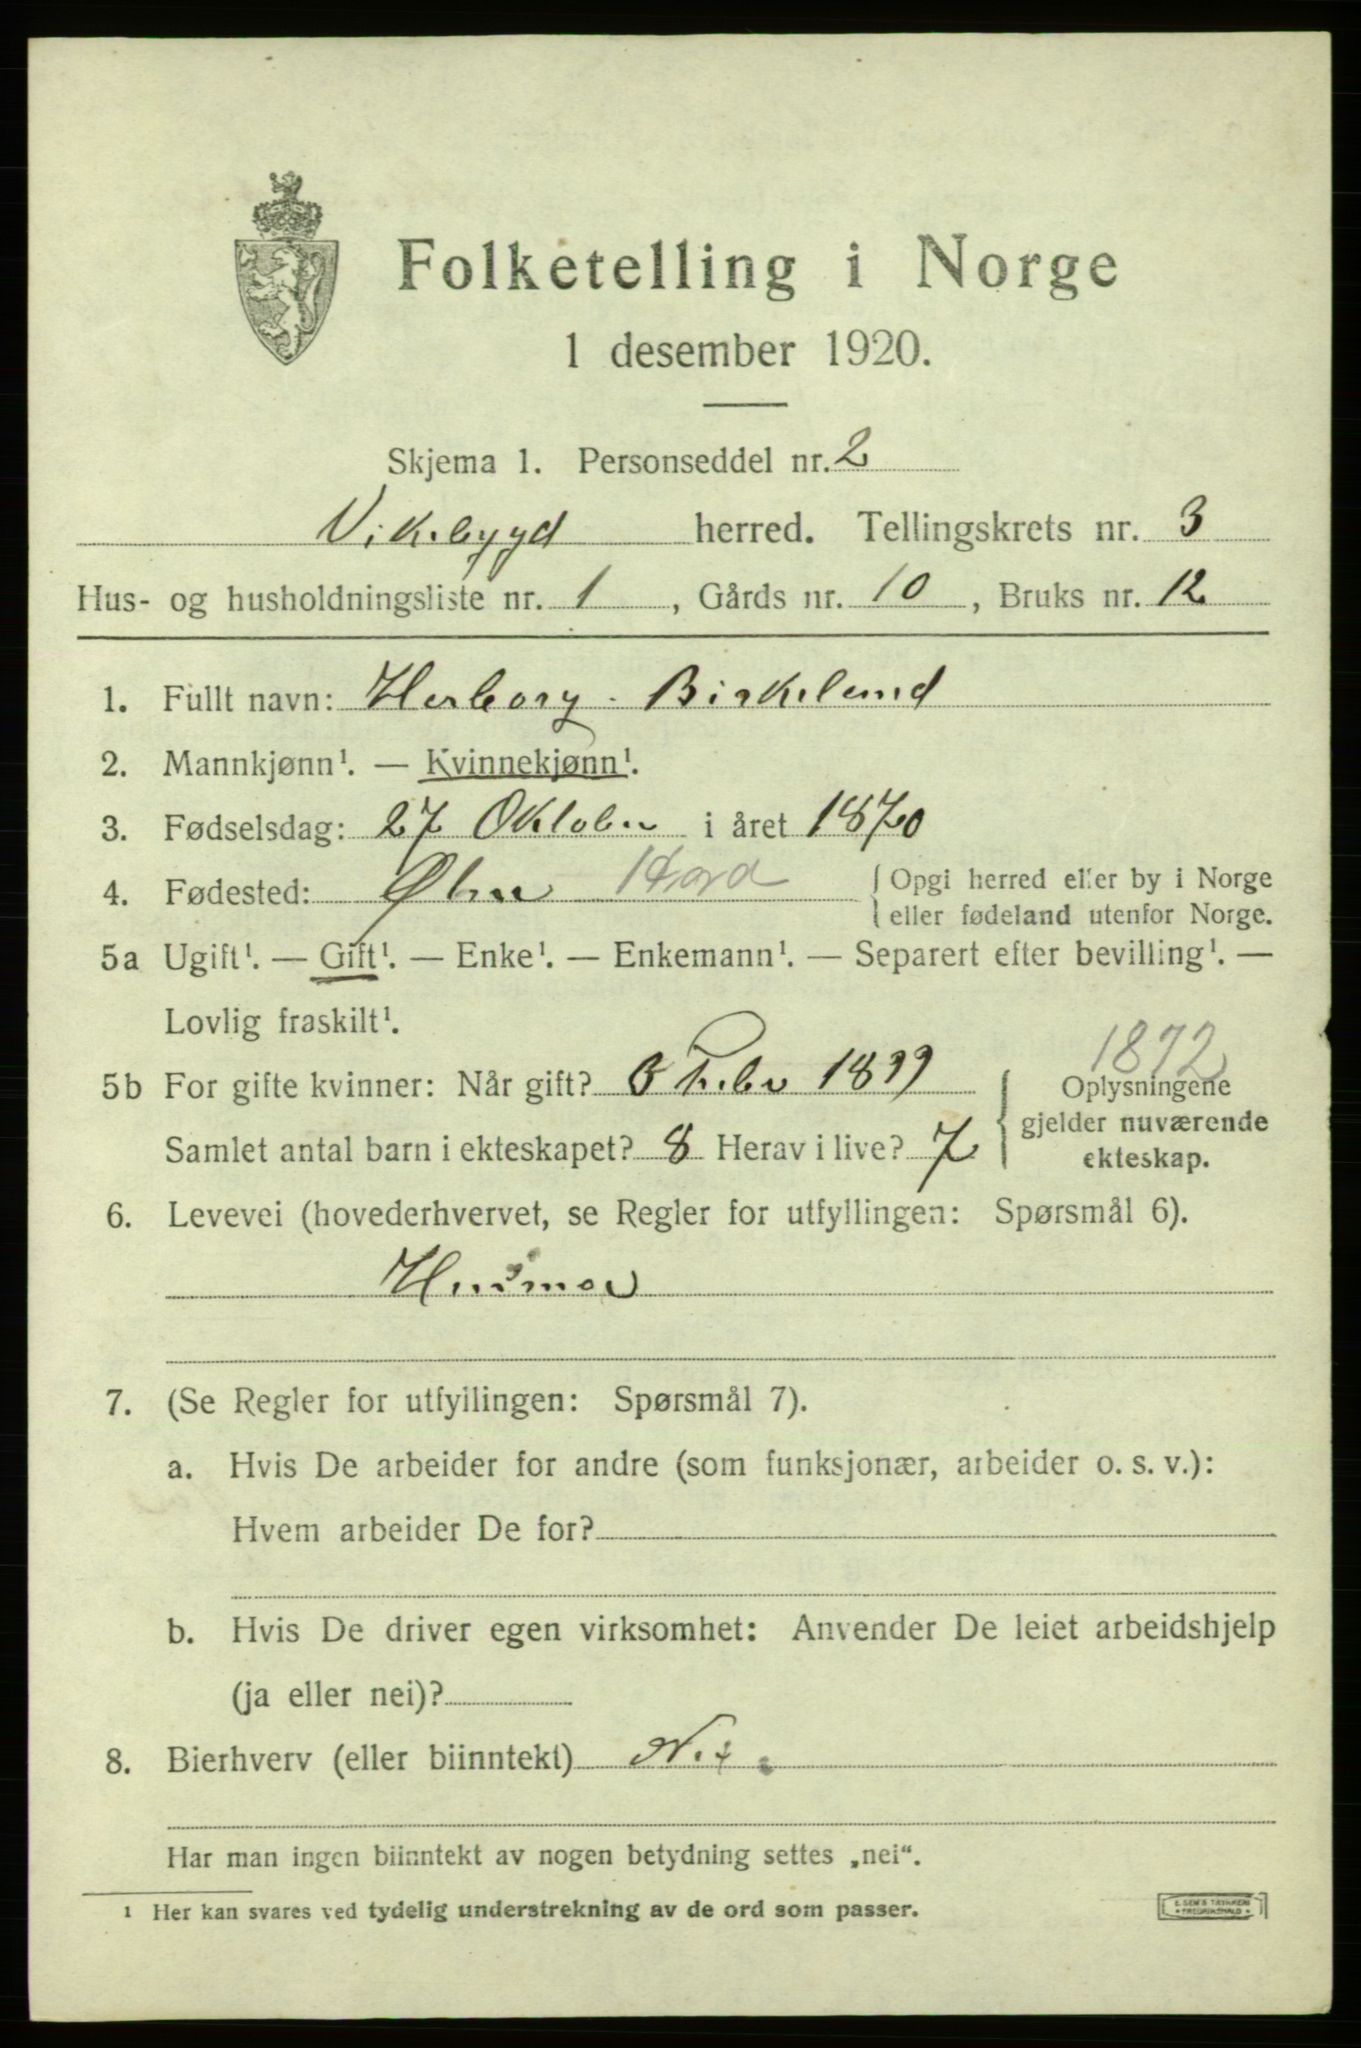 Folketelling i Norge
1 desember 1920.
Skjema 1. Personseddel nr. 2
Vikebygd herred. Tellingskrets nr. 3
Hus- og husholdningsliste nr. 1, Gårds nr. 10, Bruks nr. 12
1. Fullt navn: Herborg Birkeland
2. Mannkjønn¹. — Kvinnekjønn¹.
3. Fødselsdag: 27 Oktober i året 1870
4. Fødested: Ølen Hord { Opgi herred eller by i Norge
eller fødeland utenfor Norge.
5a Ugift¹. — Gift¹. — Enke¹. — Enkemann¹. — Separert efter bevilling¹. —
Lovlig fraskilt¹.
1872
5b For gifte kvinner: Når gift? Febr 1899 { Oplysningene
gjelder nuværende
Samlet antal barn i ekteskapet? 8 Herav i live? 7 ekteskap.
6. Levevei (hovederhvervet, se Regler for utfyllingen: Spørsmål 6).
Husmor
7. (Se Regler for utfyllingen: Spørsmål 7).
a. Hvis De arbeider for andre (som funksjonær, arbeider o. s. v.):
Hvem arbeider De for?
b. Hvis De driver egen virksomhet: Anvender De leiet arbeidshjelp
(ja eller nei)?
8. Bierhverv (eller biinntekt) Nei
Har man ingen biinntekt av nogen betydning settes „nei“.
¹ Her kan svares ved tydelig understrekning av de ord som passer.